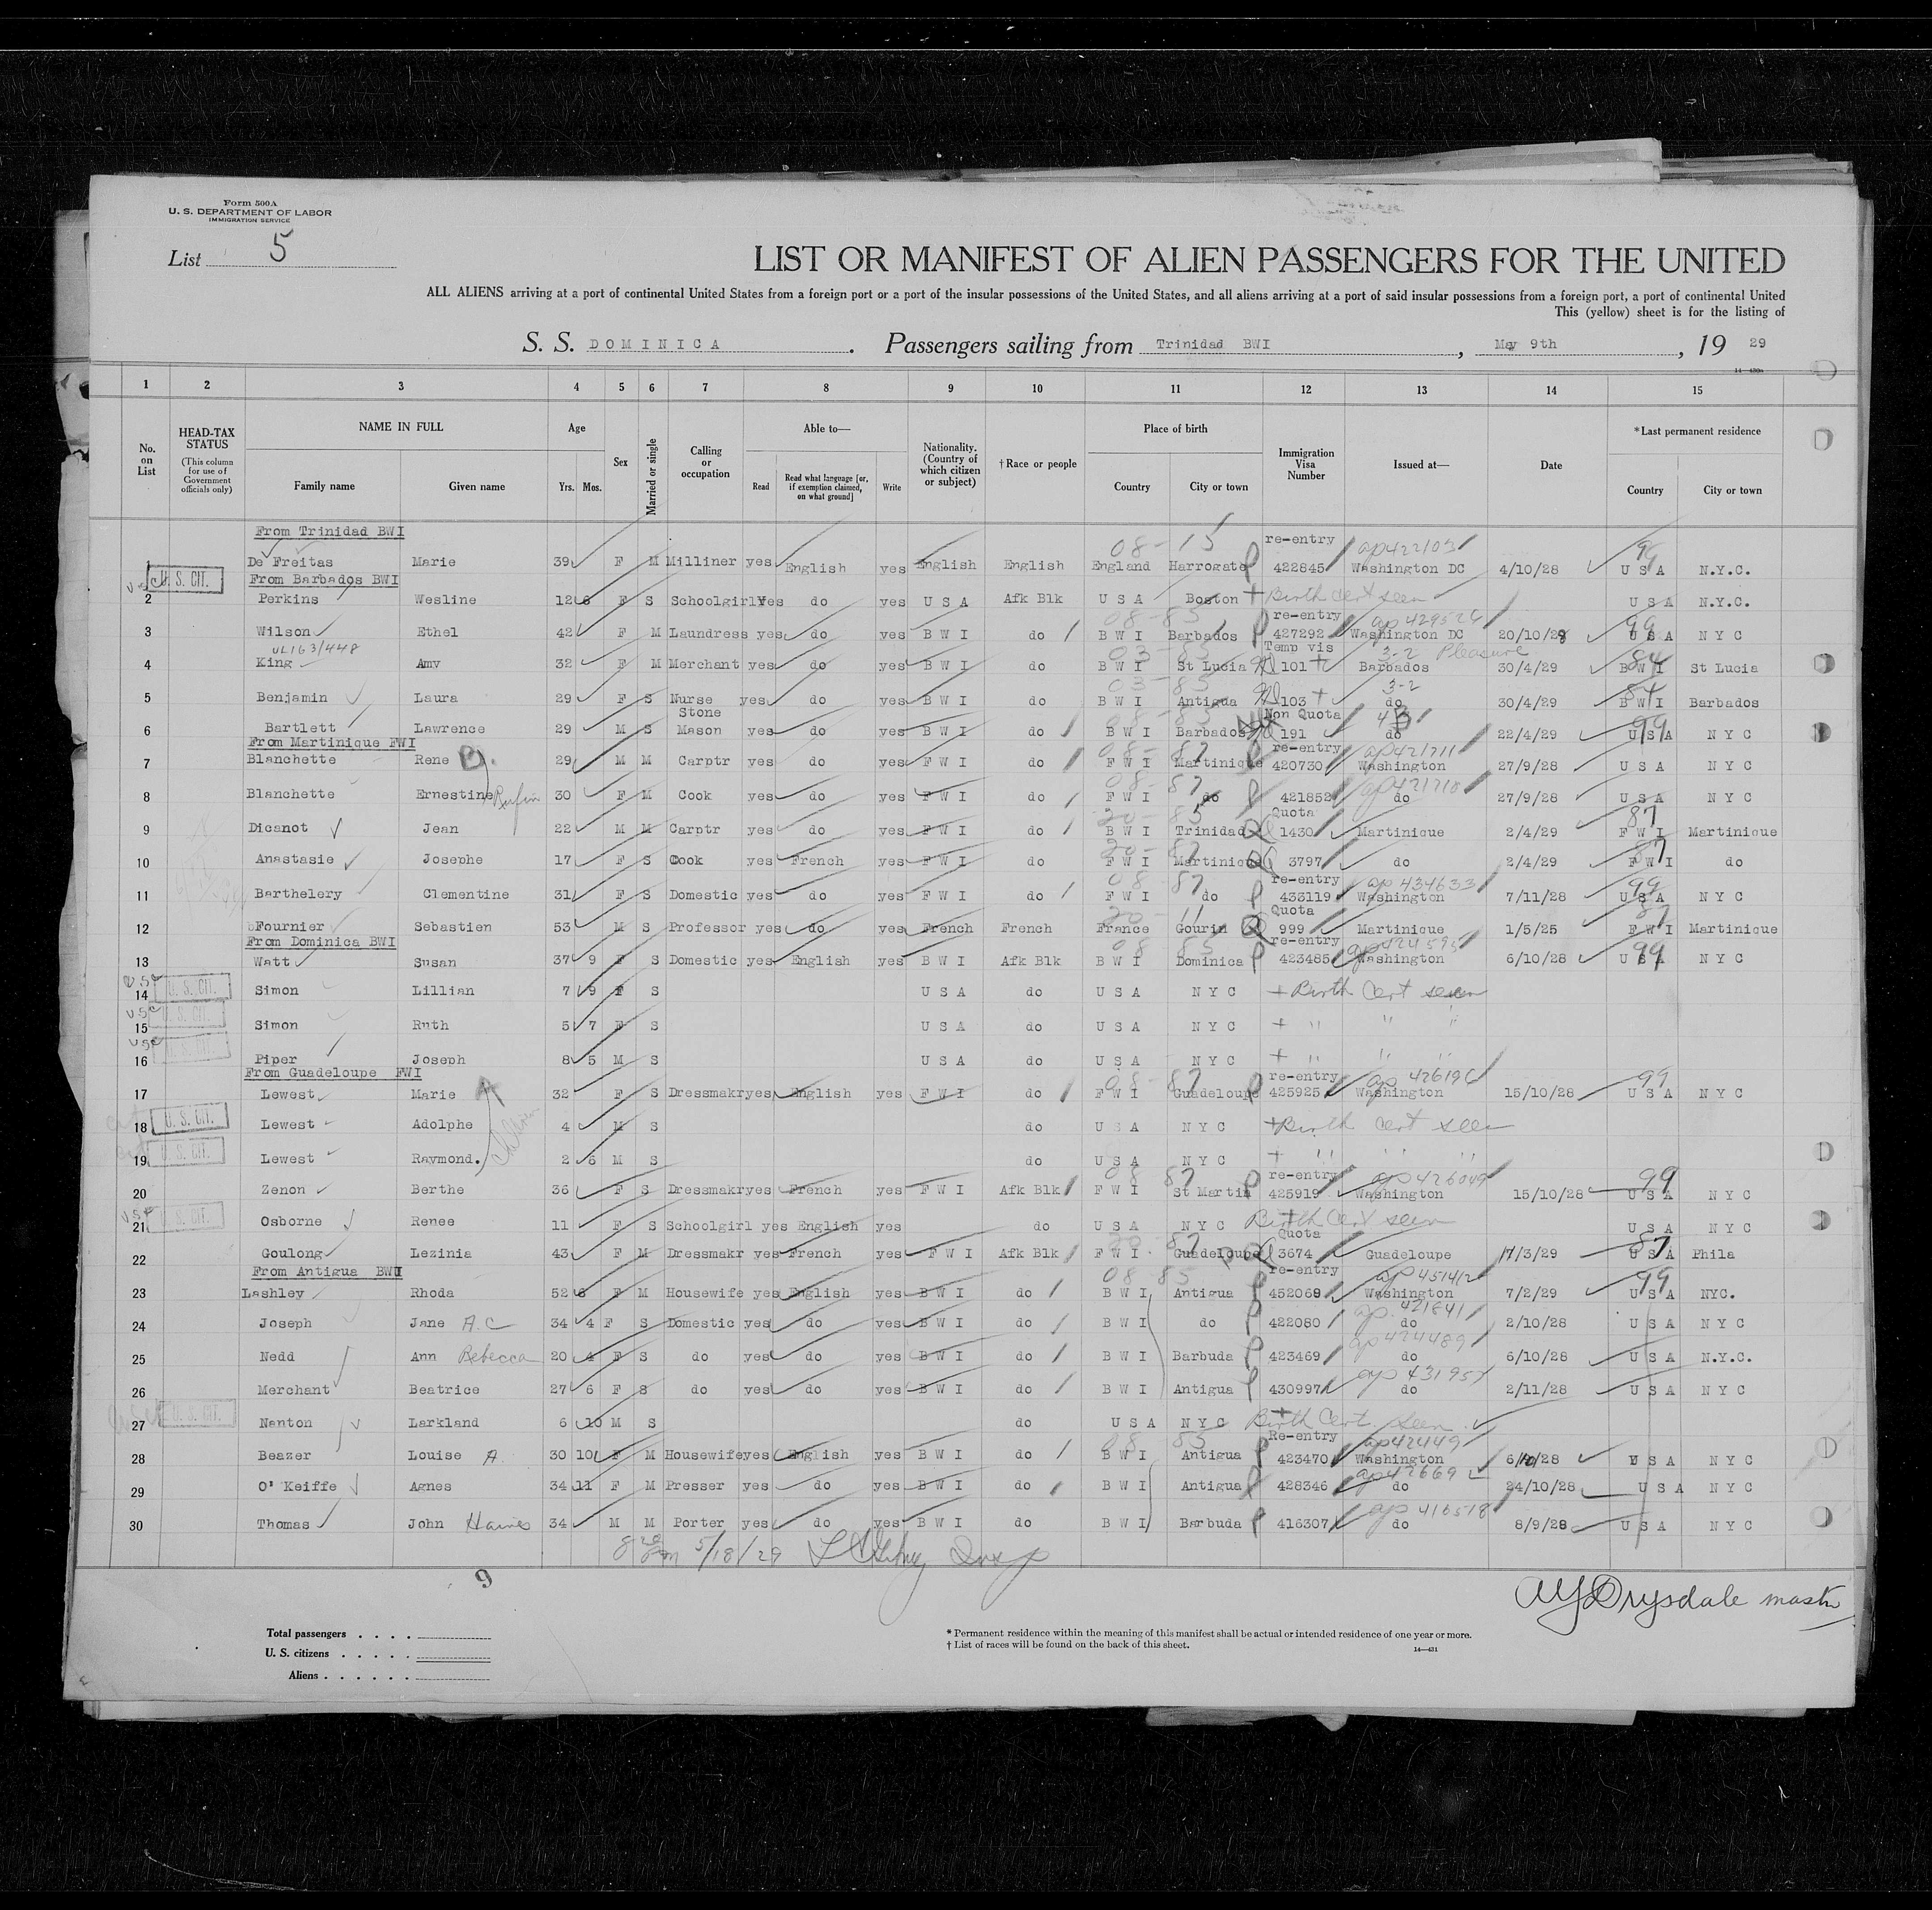 Form 500A
U. S. DEPARTMENT OF LABOR
IMMIGRATION SERVICE
List 5
LIST OR MANIFEST OF ALIEN PASSENGERS FOR THE UNITED
ALL ALIENS arriving at a port of continental United States from a foreign port or a port of the insular possessions of the United States, and all aliens arriving at a port of said insular possessions from a foreign port, a port of continental United
This (yellow) sheet is for the listing of
S. S. DOMINICA . Passengers sailing from Trinidad BWI , May 9th , 19 29
1 2 3 4 5 6 7 8 9 10 11 12 13 14 15
No. on List
HEAD-TAX STATUS (This column for use of Government officials only)
NAME IN FULL Family name Given name
Age Yrs. Mos.
Sex
Married or single
Calling or occupation
Able to— Read Read what language [or, if exemption claimed, on what ground] Write
Nationality. (Country of which citizen or subject)
†Race or people
Place of birth Country City or town
Immigration Visa Number
Issued at—
Date
*Last permanent residence Country City or town
From Trinidad BWI
1 De Freitas Marie 39 F M Milliner yes English yes English English England Harrogate re-entry 422845 Washington DC 4/10/28 U S A N.Y.C.
U. S. CIT. From Barbados BWI
2 Perkins Wesline 12 6 F S Schoolgirl Yes do yes U S A Afk Blk U S A Boston Birth cert seen U S A N.Y.C.
3 Wilson Ethel 42 F M Laundress yes do yes B W I do B W I Barbados re-entry 427292 Washington DC 20/10/28 U S A N Y C
4 King Amy 32 F M Merchant yes do yes B W I do B W I St Lucia Temp vis 101 Barbados 3-2 Pleasure 30/4/29 B W I St Lucia
5 Benjamin Laura 29 F S Nurse yes do yes B W I do B W I Antigua 103 do 3-2 30/4/29 B W I Barbados
6 Bartlett Lawrence 29 M S Stone Mason yes do yes B W I do B W I Barbados Non Quota 191 do 22/4/29 U S A N Y C
From Martinique FWI
7 Blanchette Rene 29 M M Carptr yes do yes F W I do F W I Martinique re-entry 420730 Washington 27/9/28 U S A N Y C
8 Blanchette Ernestine 30 F M Cook yes do yes F W I do F W I do 421852 do 27/9/28 U S A N Y C
9 Dicanot Jean 22 M M Carptr yes do yes F W I do B W I Trinidad Quota 1430 Martinique 2/4/29 F W I Martinique
10 Anastasie Josephe 17 F S Cook yes French yes F W I do F W I Martinique 3797 do 2/4/29 F W I do
11 Barthelery Clementine 31 F S Domestic yes do yes F W I do F W I do re-entry 433119 ap 434633 Washington 7/11/28 U S A N Y C
12 Fournier Sebastien 53 M S Professor yes do yes French French France Gourin Quota 999 Martinique 1/5/25 F W I Martinique
From Dominica BWI
13 Watt Susan 37 9 F S Domestic yes English yes B W I Afk Blk B W I Dominica re-entry 423485 Washington 6/10/28 U S A N Y C
14 U. S. CIT. Simon Lillian 7 9 F S U S A do U S A N Y C Birth Cert seen
15 U. S. CIT. Simon Ruth 5 7 F S U S A do U S A N Y C " " "
16 U. S. CIT. Piper Joseph 8 5 M S U S A do U S A N Y C " " "
From Guadeloupe FWI
17 Lewest Marie 32 F S Dressmakr yes English yes F W I do F W I Guadeloupe re-entry 425925 ap 426196 Washington 15/10/28 U S A N Y C
18 U. S. CIT. Lewest Adolphe 4 M S do U S A N Y C Birth cert seen
19 U. S. CIT. Lewest Raymond. 2 6 M S do U S A N Y C " " "
20 Zenon Berthe 36 F S Dressmakr yes French yes F W I Afk Blk F W I St Martin re-entry 425919 ap 426049 Washington 15/10/28 U S A N Y C
21 U. S. CIT. Osborne Renee 11 F S Schoolgirl yes English yes do U S A N Y C Birth Cert seen U S A N Y C
22 Goulong Lezinia 43 F M Dressmakr yes French yes F W I Afk Blk F W I Guadeloupe Quota 3674 Guadeloupe 17/3/29 U S A Phila
From Antigua BWI
23 Lashley Rhoda 52 6 F M Housewife yes English yes B W I do B W I Antigua re-entry 452068 ap 451412 Washington 7/2/29 U S A NYC.
24 Joseph Jane A.C 34 4 F S Domestic yes do yes B W I do B W I do 422080 ap. 421841 do 2/10/28 U S A N Y C
25 Nedd Ann Rebecca 20 4 F S do yes do yes B W I do B W I Barbuda 423469 ap 424489 do 6/10/28 U S A N.Y.C.
26 Merchant Beatrice 27 6 F S do yes do yes B W I do B W I Antigua 430997 ap 431957 do 2/11/28 U S A N Y C
27 U. S. CIT. Nanton Larkland 6 10 M S do U S A N Y C Birth Cert. Seen
28 Beazer Louise A 30 10 F M Housewife yes English yes B W I do B W I Antigua Re-entry 423470 ap 42449 Washington 6/10/28 U S A N Y C
29 O' Keiffe Agnes 34 11 F M Presser yes do yes B W I do B W I Antigua 428346 ap 42669 do 24/10/28 U S A N Y C
30 Thomas John 34 M M Porter yes do yes B W I do B W I Barbuda 416307 ap 416518 do 8/9/28 U S A N Y C
5/18/29
9
Drysdale master
Total passengers
U. S. citizens
Aliens
* Permanent residence within the meaning of this manifest shall be actual or intended residence of one year or more.
† List of races will be found on the back of this sheet.
14—431